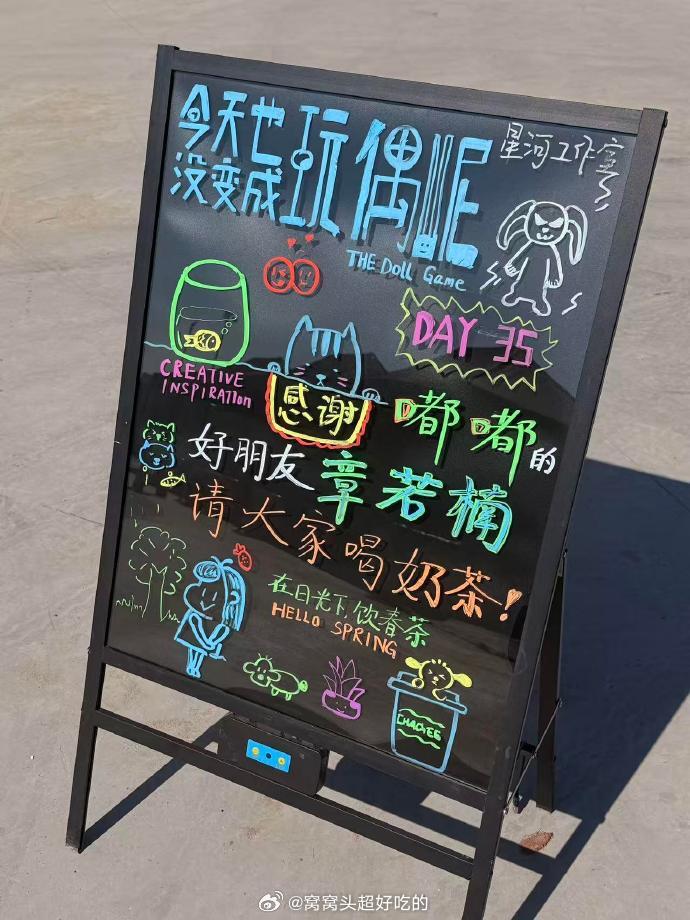 今天也
没变成
玩偶呢
星河工作室
THE Doll Game
DAY 35
CREATIVE
INSPIRATION
感谢 嘟嘟的
好朋友 章若楠
请大家喝奶茶!
在日光下饮春茶
HELLO SPRING
CHAGEE
@窝窝头超好吃的